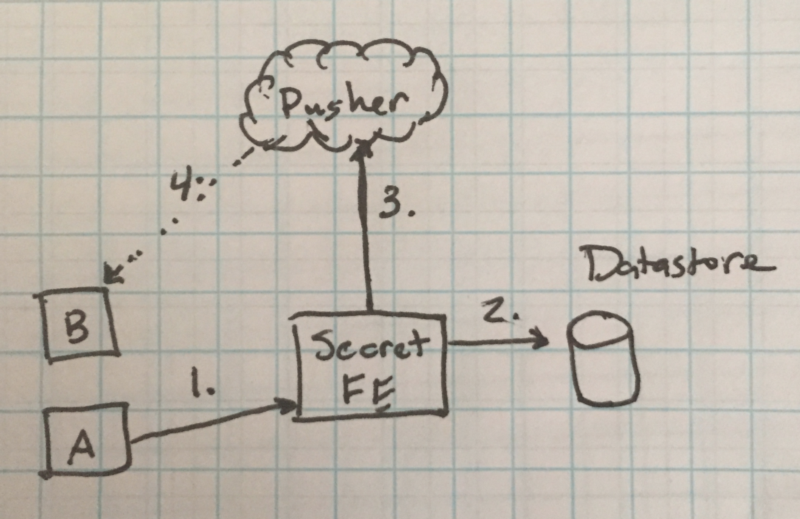 Pusher
4.
3.
Datastore
B
2.
Secret
FE
1.
A